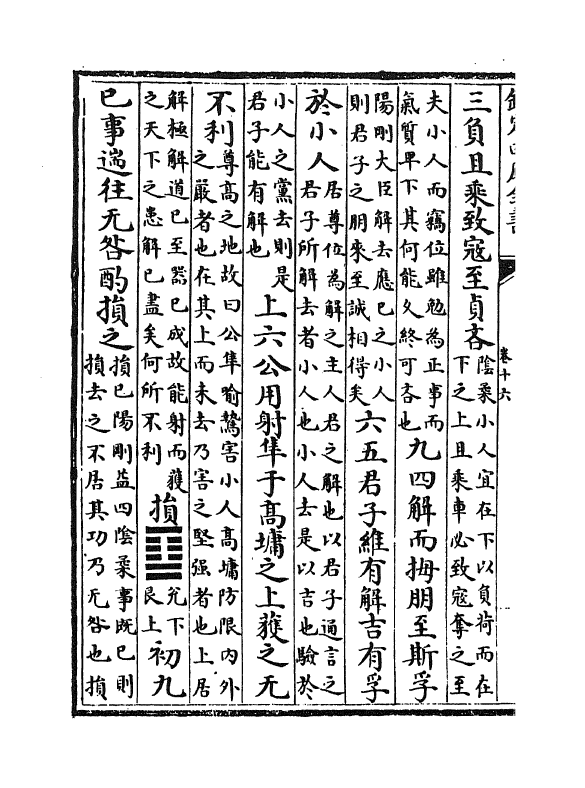 卷十六
三負且乘致寇至貞吝陰柔小人宜在下以負荷而在下之上且乘車必致寇奪之至
夫小人而竊位雖勉為正事而氣質卑下其何能久終可吝也九四解而拇朋至斯孚
陽剛大臣解去應已之小人則君子之朋來至誠相得矣六五君子維有解吉有孚
於小人居尊位為解之主人君之解也以君子通言之君子所解去者小人也小人去是以吉也驗於
小人之黨去則是君子能有解也上六公用射隼于髙墉之上獲之无
不利尊髙之地故曰公隼喻鷙害小人髙墉防限内外之嚴者也在其上而未去乃害之堅强者也上居
解極解道已至器已成故能射而獲之天下之患解已盡矣何所不利損䷨兊下艮上初九
已事遄往无咎酌損之損已陽剛益四陰柔事既已則損去之不居其功乃无咎也損